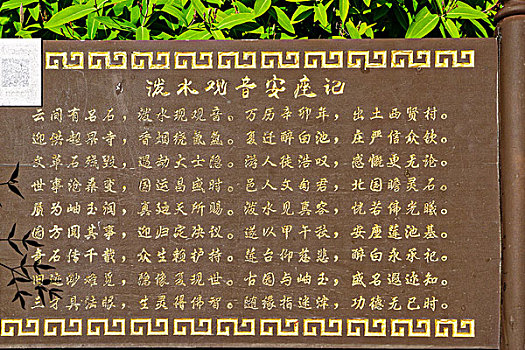 泼水观音安座记
云间有名石，泼水现观音。万历辛卯年，出土西贤村。
迎供超果寺，香烟绕氤氲。复迁醉白池，庄严信众钦。
文革石残毁，遇劫大士隐。游人徒浩叹，感慨更无论。
世事沧桑变，国运昌盛时。邑人文甸君，北国瞻灵石。
属为岫玉润，真乃天所赐。泼水见真容，恍若佛光熙。
因方闻其事，迎归定决议。遂以甲午秋，安座莲池基。
奇石传千载，众生赖护持。莲台仰慈悲，醉白永承祀。
妙难觅，德像复现世。古图与岫玉，盛名遐迩知。
三宝具法眼，生灵得佛智。随缘指迷津，功德无已时。